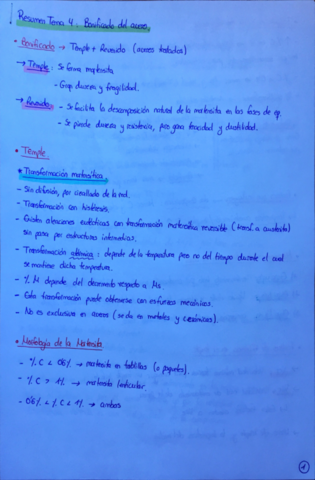 Resumen Tema 4: Bonificado del acero.
• Bonificado → Temple + Revenido (aceros tratados)
→ Temple: - Se forma martensita
- Gran dureza y fragilidad.
→ Revenido: - Se facilita la descomposición natural de la martensita en las fases de eq.
- Se pierde dureza y resistencia, pero gana tenacidad y ductilidad.
• Temple:
• Transformación martensítica
- Sin difusión, por cizallado de la red.
- Transformación con histéresis.
- Existen aleaciones con transformación martensítica reversible (transf. a austenita)
sin pasar por estructuras intermedias.
- Transformación atérmica: depende de la temperatura pero no del tiempo durante el cual
se mantiene dicha temperatura.
- % M depende del decremento respecto a Ms.
- Esta transformación puede obtenerse con esfuerzos mecánicos.
- No es exclusiva en aceros (se da en metales y cerámicas).
• Morfología de la Martensita
- % C < 0'6% → martensita en tablillas (o paquetes).
- % C > 1% → martensita lenticular.
- 0'6% < % C < 1% → ambas
1